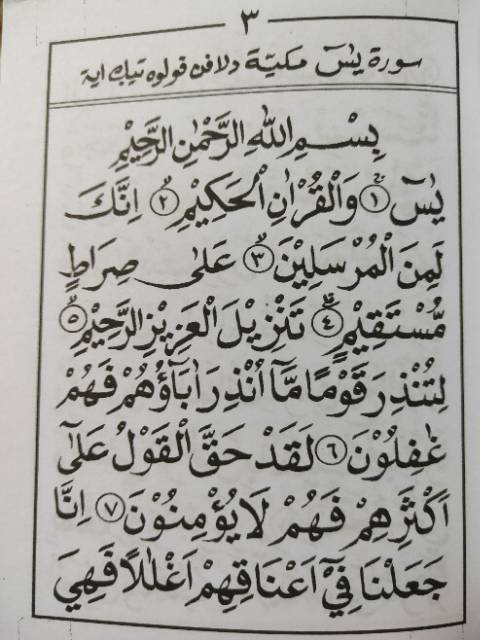 ٣
سورة يٰسٓ مكيّة دلافن ڤولوه تيݢ اية
بِسْمِ اللّٰهِ الرَّحْمٰنِ الرَّحِيْمِ
يٰسٓ ۝١ وَالْقُرْاٰنِ الْحَكِيْمِ ۝٢ اِنَّكَ
لَمِنَ الْمُرْسَلِيْنَ ۝٣ عَلٰى صِرَاطٍ
مُّسْتَقِيْمٍ ۝٤ تَنْزِيْلَ الْعَزِيْزِ الرَّحِيْمِ ۝٥
لِتُنْذِرَ قَوْمًا مَّآ اُنْذِرَ اٰبَآؤُهُمْ فَهُمْ
غٰفِلُوْنَ ۝٦ لَقَدْ حَقَّ الْقَوْلُ عَلٰٓى
اَكْثَرِهِمْ فَهُمْ لَا يُؤْمِنُوْنَ ۝٧ اِنَّا
جَعَلْنَا فِيْٓ اَعْنَاقِهِمْ اَغْلٰلًا فَهِيَ